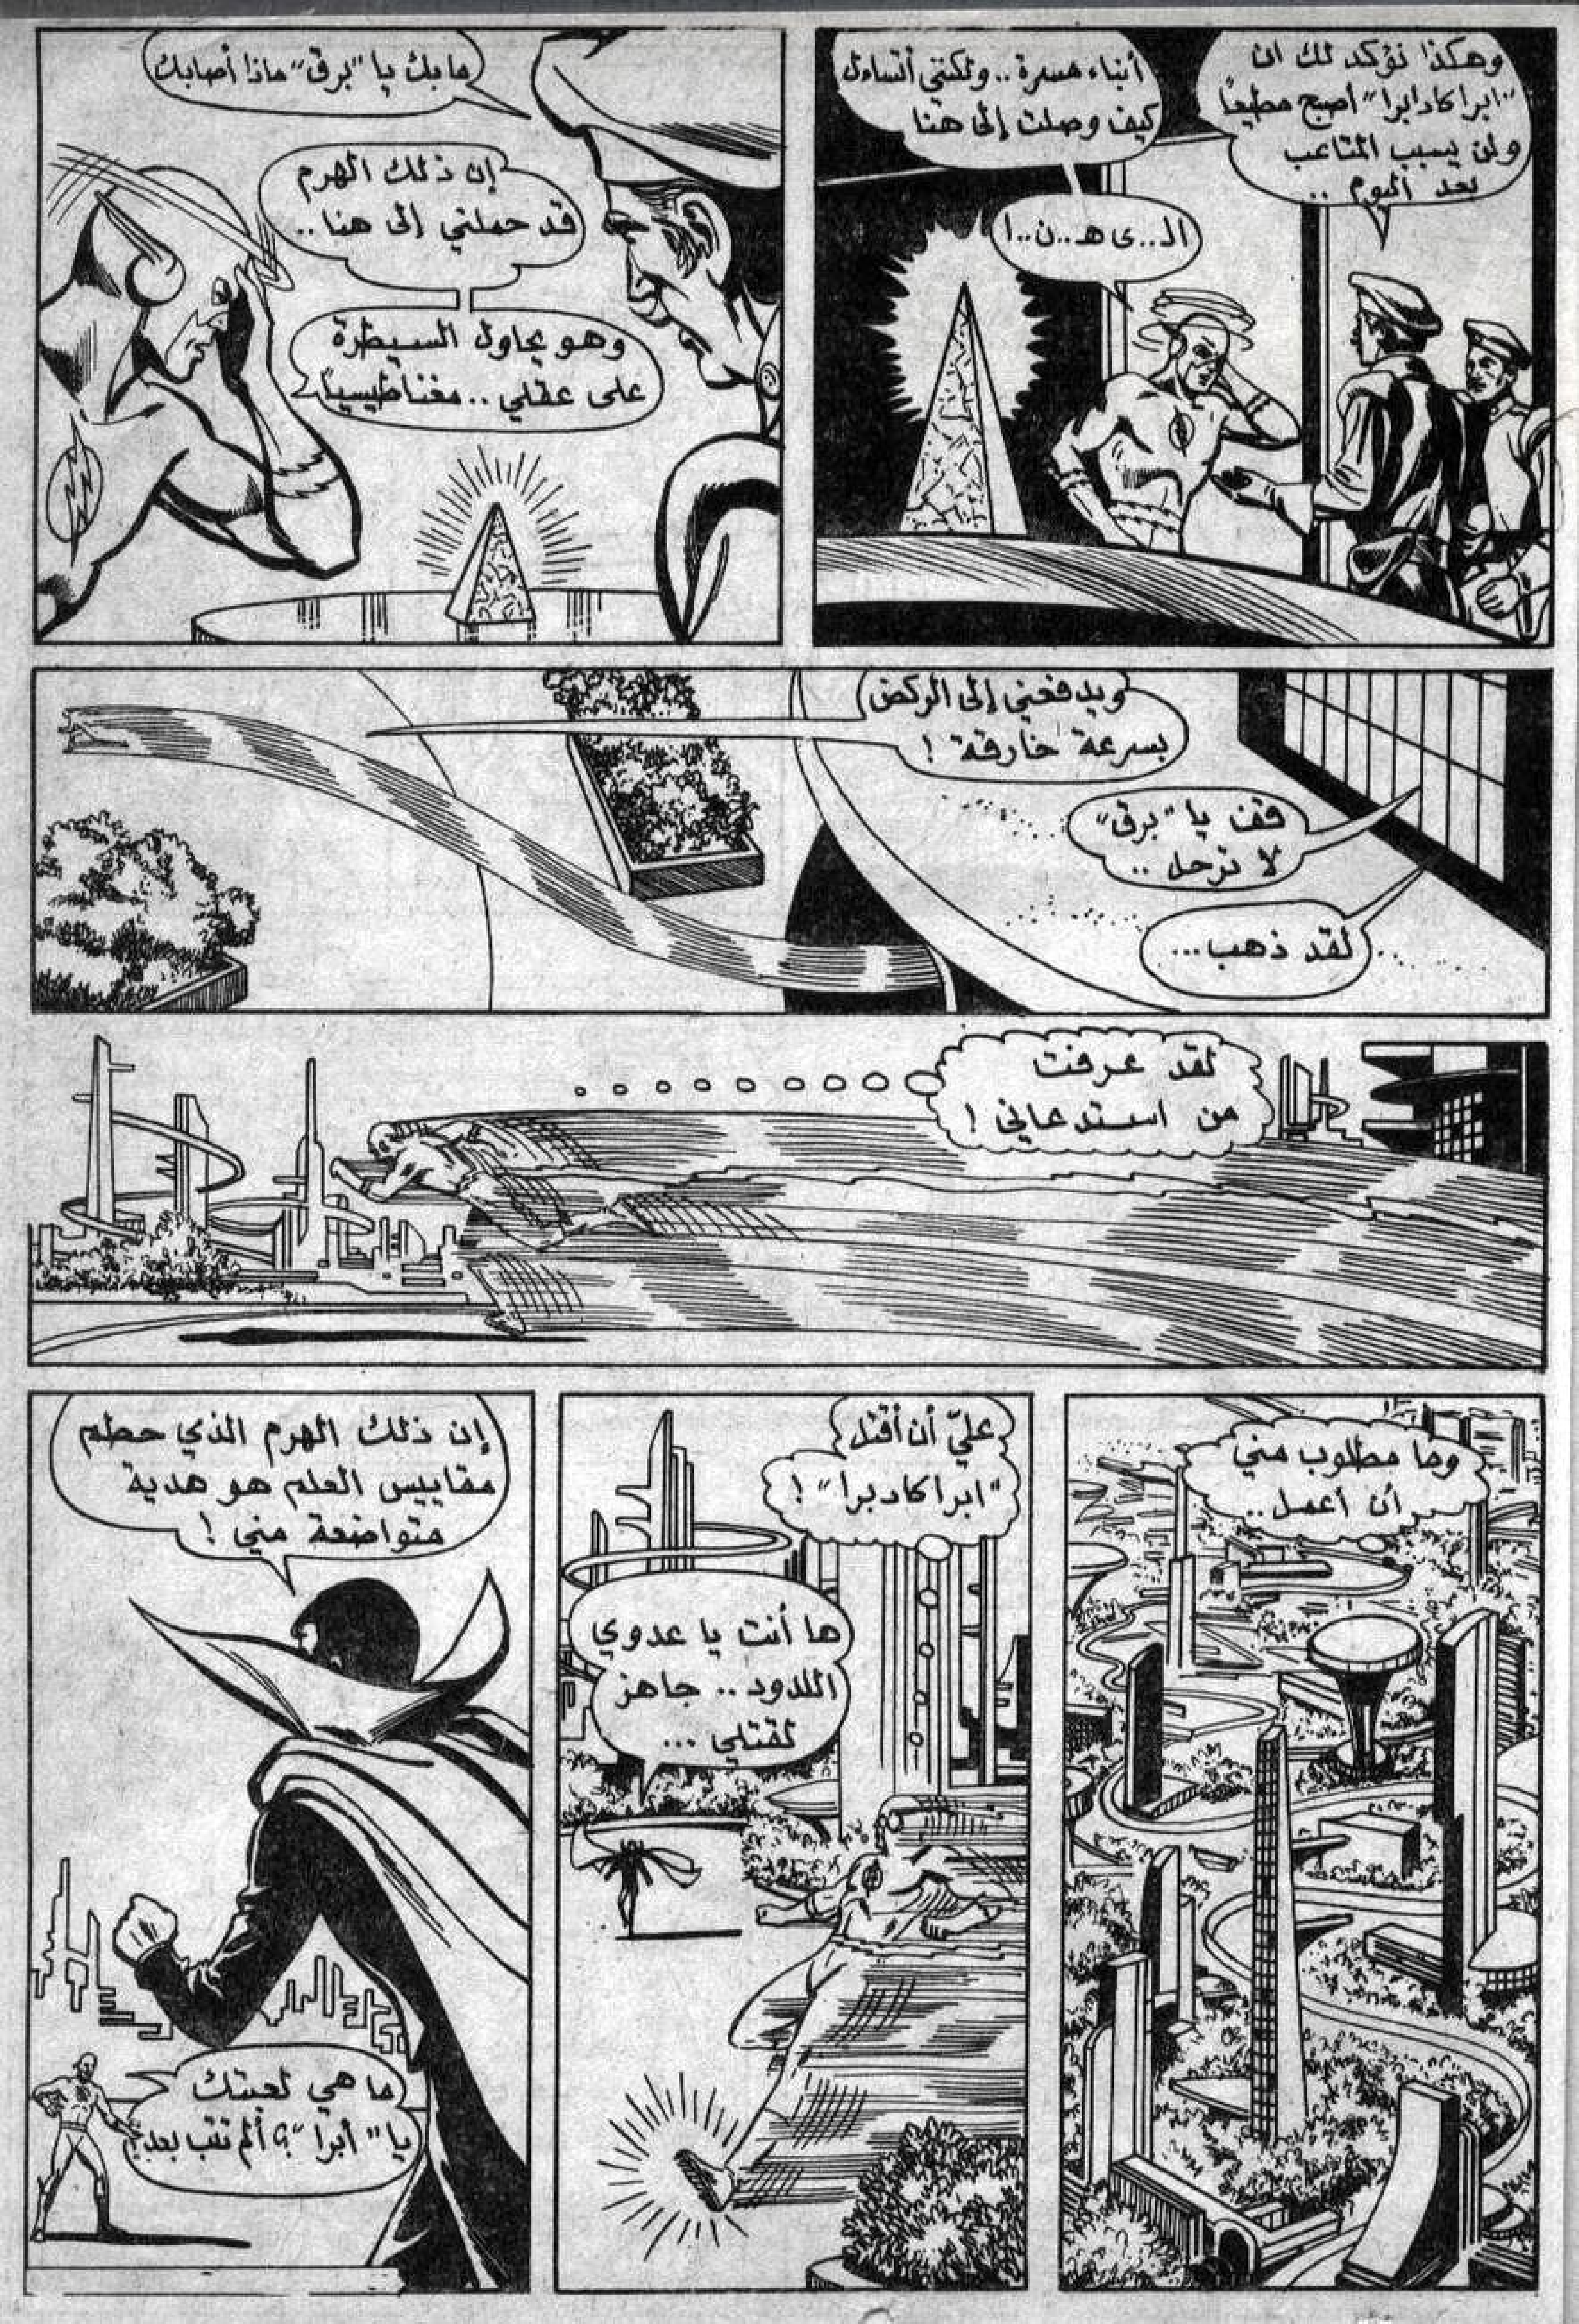 وهكذا نؤكد لك ان
"ابراكادابرا" أصبح مطيعاً
ولن يسبب المتاعب
بعد اليوم ..
أنباء مسرة .. ولكنني أتساءل
كيف وصلت إلى هنا
الـ..ى هـ..ن..ا
ما بك يا "برق" ماذا أصابك
إن ذلك الهرم
قد حملني إلى هنا ..
وهو يحاول السيطرة
على عقلي .. مغناطيسياً
ويدفعني إلى الركض
بسرعة خارقة !
قف يا "برق"
لا ترحل ..
لقد ذهب ...
لقد عرفت
من استدعاني !
وما مطلوب مني
أن أعمل ..
عليّ أن أقتل
"ابراكادبرا" !
ها أنت يا عدوي
اللدود .. جاهز
لقتلي ...
إن ذلك الهرم الذي حطم
مقاييس العلم هو هدية
متواضعة مني !
ما هي لعبتك
يا "أبرا" ؟ ألم تتب بعد ؟